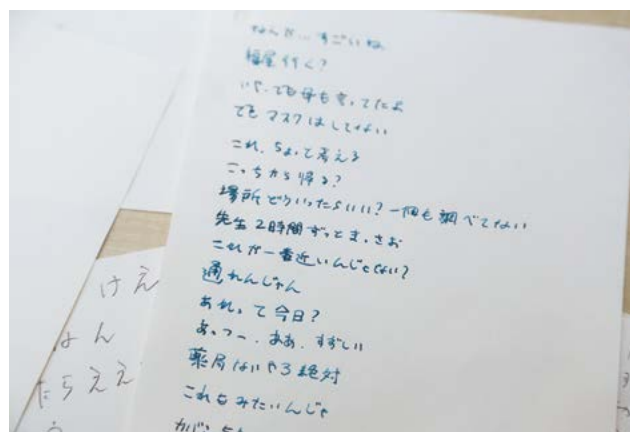 なんか…すごいね
福屋行く?
いや、でも母も言ってたよ
でも マスクはしてない
これ、ちょっと考える
こっちから帰る?
場所どういったらいい?一個も調べてない
先生2時間ずっとまっさお
これが一番近いんじゃない?
通れんじゃん
あれって今日?
あっつー、ああ、すずしい
薬局ないやろ絶対
これもみたいんじゃ
けえ
よん
たらええ